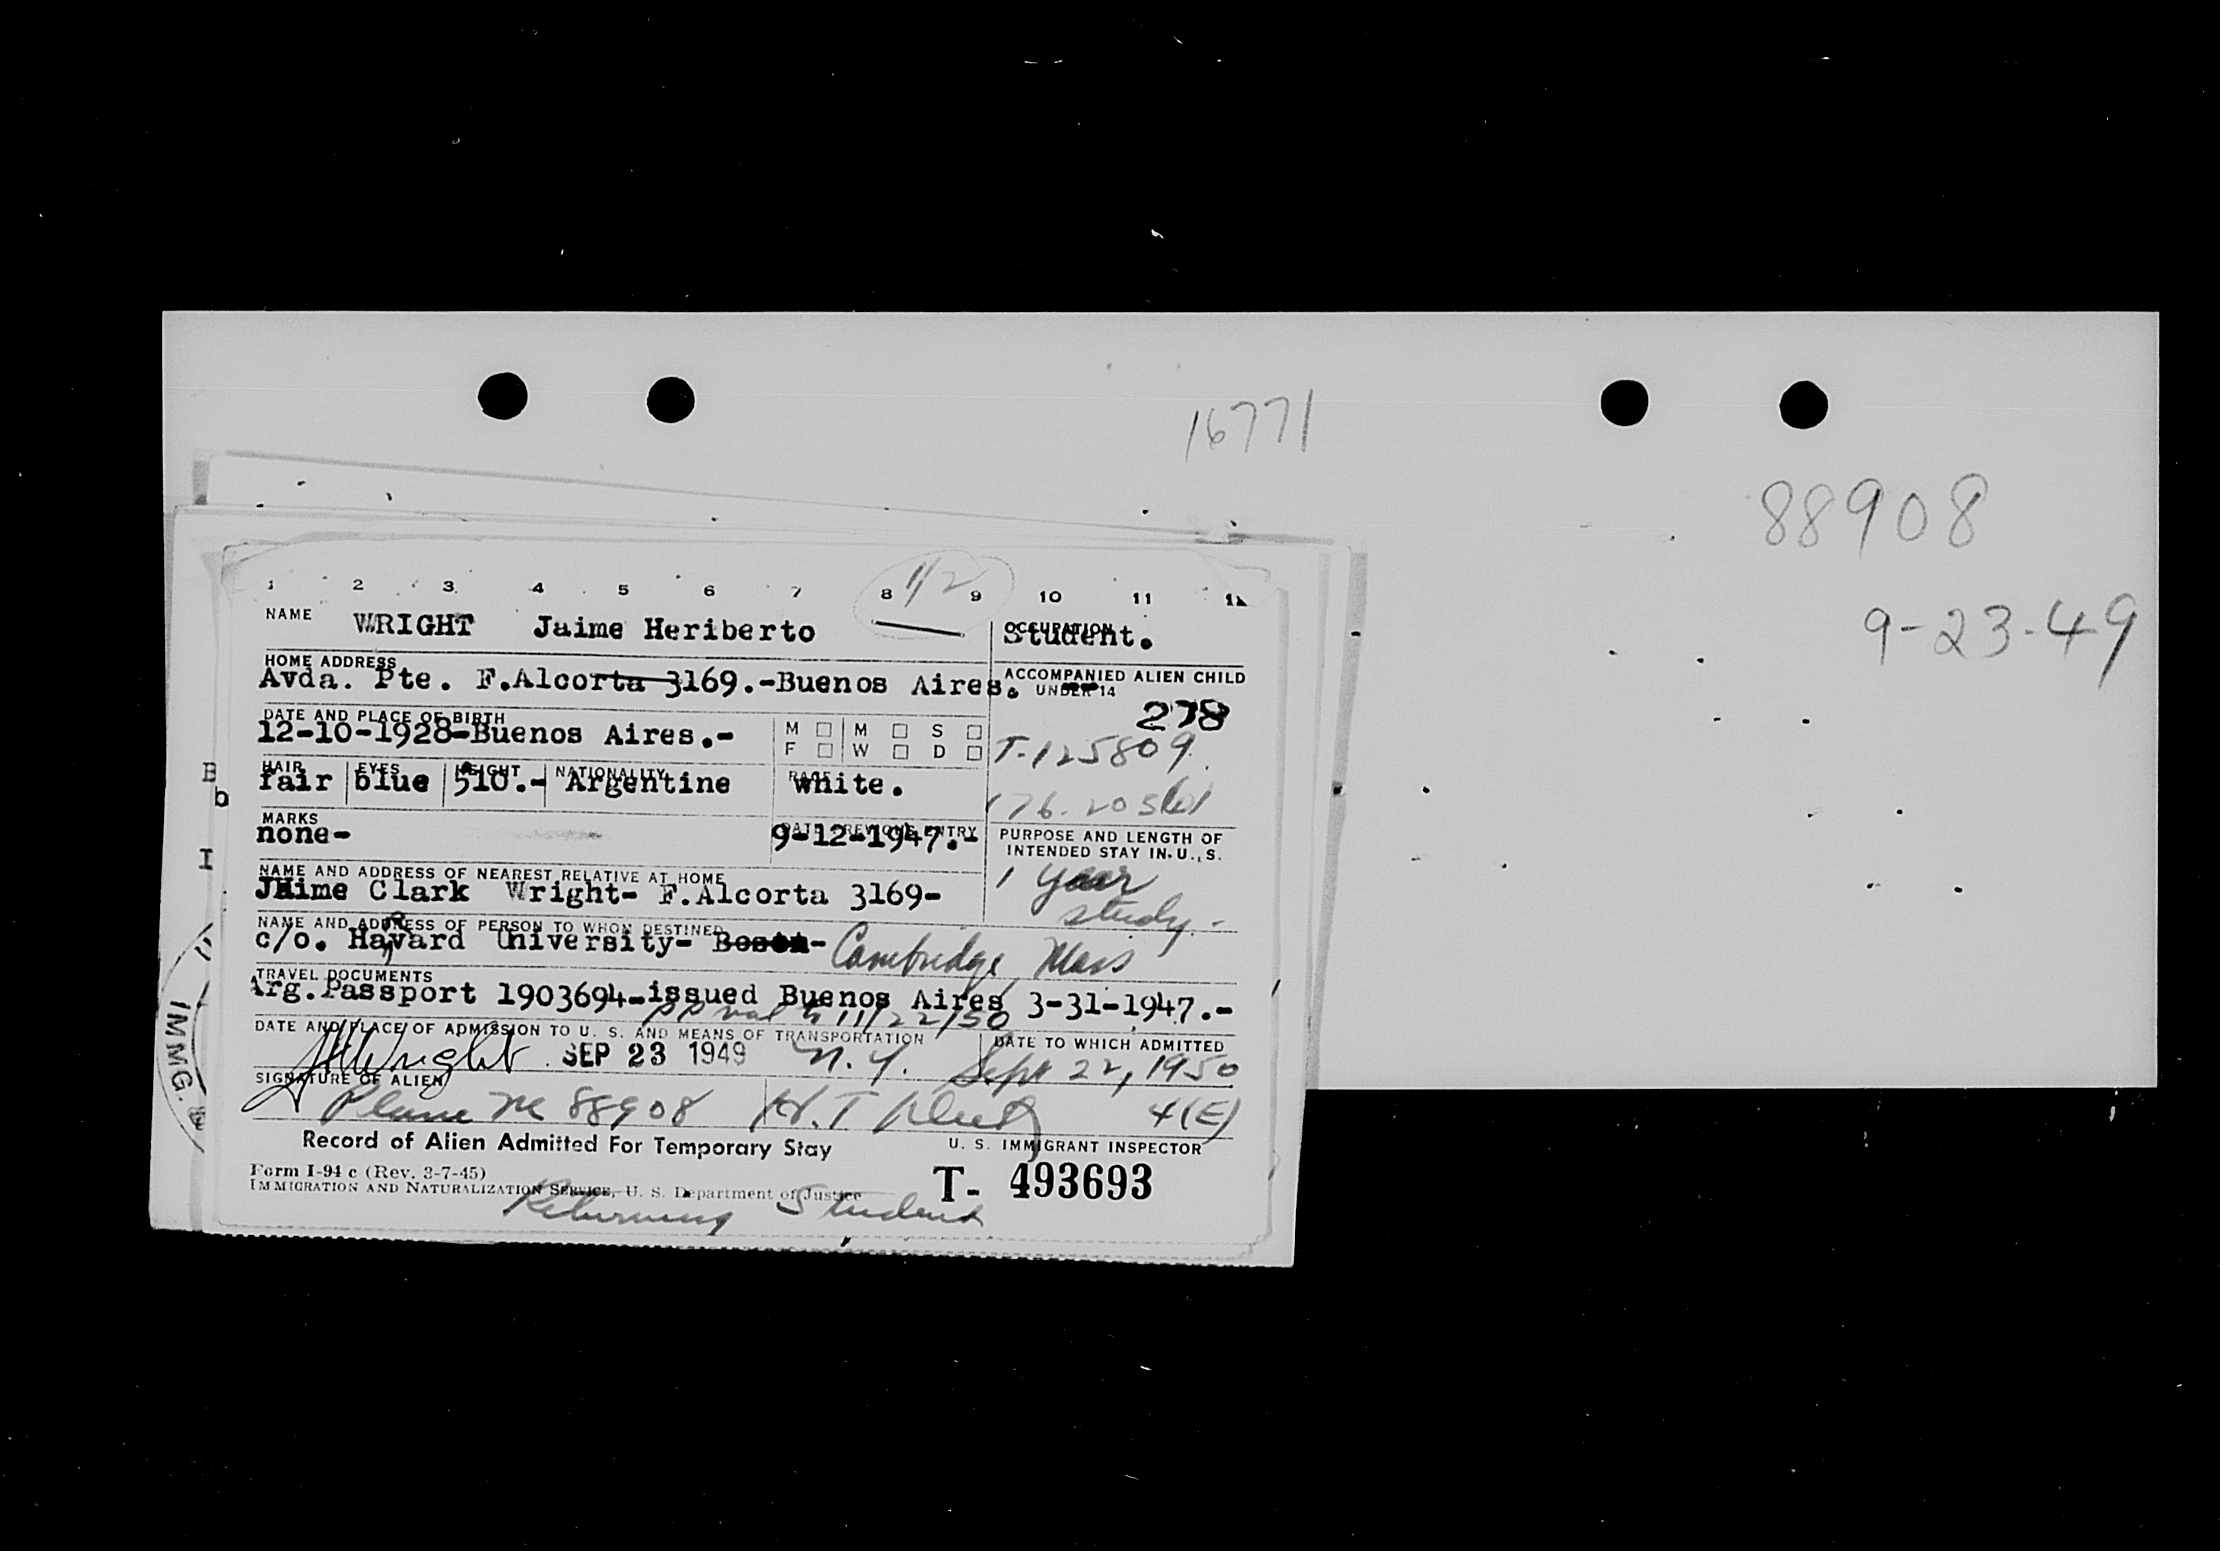 16771
88908
9-23-49
1 2 3 4 5 6 7 8 9 10 11 12
1/2
NAME WRIGHT Jaime Heriberto
OCCUPATION Student.
HOME ADDRESS
Avda. Pte. F.Alcorta 3169.-Buenos Aires.
ACCOMPANIED ALIEN CHILD
UNDER 14
278
DATE AND PLACE OF BIRTH
12-10-1928-Buenos Aires.-
M □ M □ S □
F □ W □ D □
T-125809.
HAIR fair EYES blue HEIGHT 510.- NATIONALITY Argentine RACE white.
MARKS
none-
DATE PREVIOUS ENTRY
9-12-1947.-
PURPOSE AND LENGTH OF
INTENDED STAY IN U. S.
1 year
study.-
NAME AND ADDRESS OF NEAREST RELATIVE AT HOME
Jaime Clark Wright- F.Alcorta 3169-
NAME AND ADDRESS OF PERSON TO WHOM DESTINED
c/o. Harvard University- Boston- Cambridge, Mass
TRAVEL DOCUMENTS
Arg.Passport 1903694-issued Buenos Aires 3-31-1947.-
PP val to 11/22/50
DATE AND PLACE OF ADMISSION TO U. S. AND MEANS OF TRANSPORTATION
DATE TO WHICH ADMITTED
JHWright SEP 23 1949 N.Y. Sept 22, 1950
SIGNATURE OF ALIEN
Plane 88908 H.T. 4(E)
Record of Alien Admitted For Temporary Stay
U. S. IMMIGRANT INSPECTOR
Form I-94 c (Rev. 3-7-45)
IMMIGRATION AND NATURALIZATION SERVICE, U. S. Department of Justice
T- 493693
Returning Student
B
b
I
IMMIG.